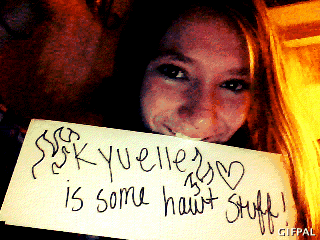 Kyuelle ♡
is some hawt stuff!
GIFPAL